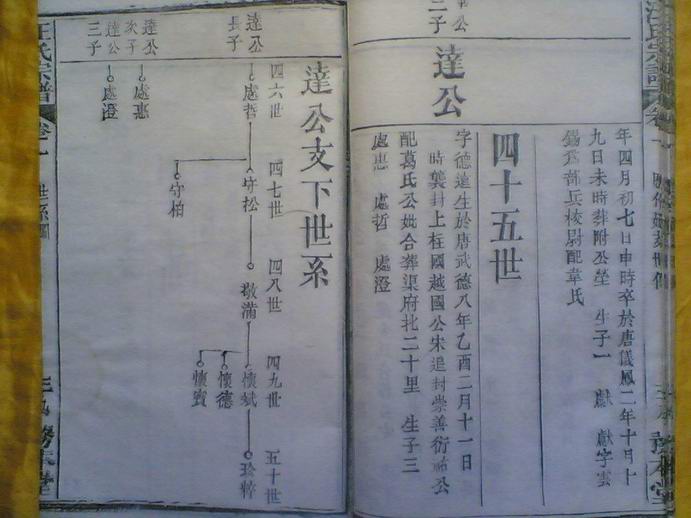 年四月初七日申時卒於唐儀鳳二年十月十
九日未時葬附公塋 生子一 獻 獻字雲
錫爲部兵校尉配韋氏
四十五世
達公
字德達生於唐武德八年乙酉二月十一日
時襲封上柱國越國公宋追封崇善衍祐公
配葛氏公妣合葬渠府北二十里 生子三
處惠 處哲 處澄
達公支下世系
四六世 四七世 四八世 四九世 五十世
達公長子
處哲 守松 敬滿 懷斌 玲粹
守柏
懷德
懷賓
達公次子
處惠
達公三子
處澄
汪氏宗譜 卷一 世系圖